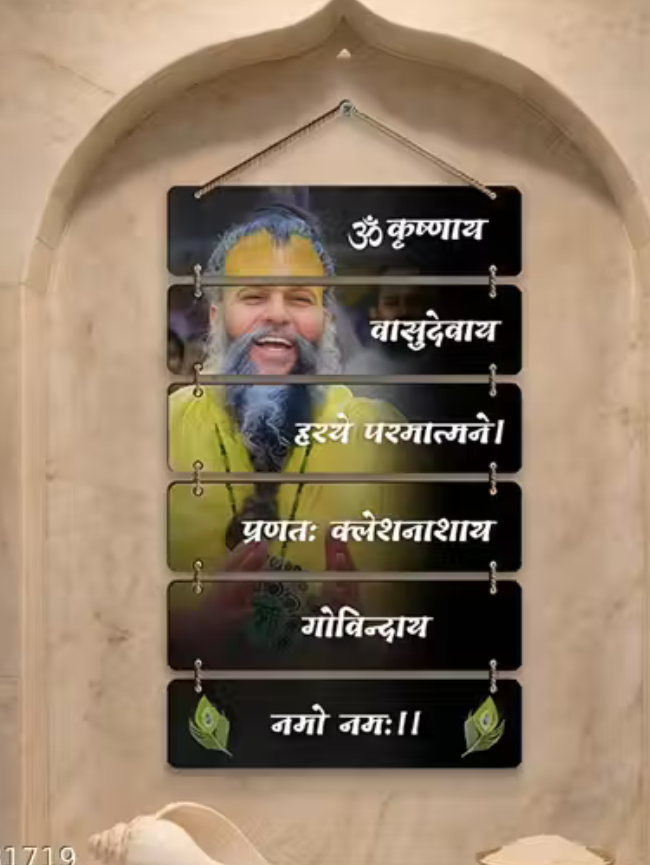 ॐ कृष्णाय
वासुदेवाय
हरये परमात्मने।
प्रणतः क्लेशनाशाय
गोविन्दाय
नमो नमः।।
1719